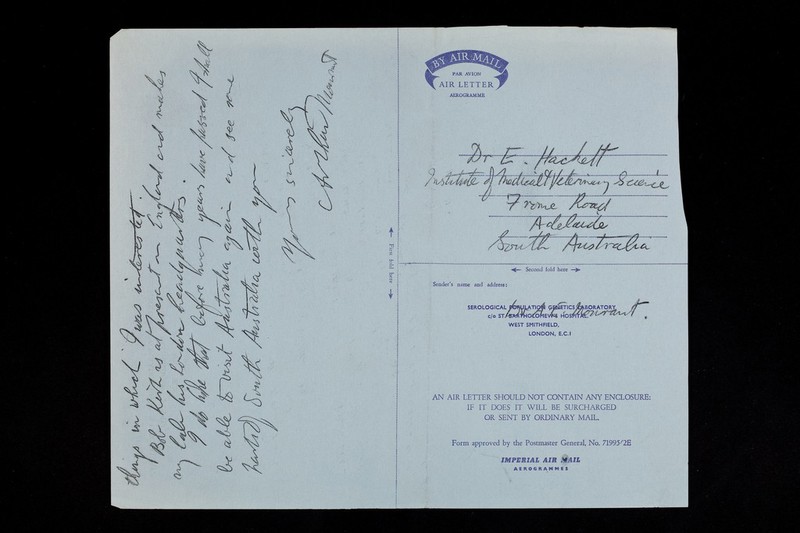 things in which I was interested.
Bob Kirk is at present in England and makes
my lab his London headquarters.
I do hope that before many years have passed I shall
be able to visit Australia again and see
of South Australia with you
Yours sincerely
Arthur Mourant
BY AIR MAIL
PAR AVION
AIR LETTER
AEROGRAMME
Dr E. Hackett
Institute of Medical & Veterinary Science
Frome Road
Adelaide
South Australia
← First fold here →
← Second fold here →
Sender's name and address:
Dr A.E. Mourant.
SEROLOGICAL POPULATION GENETICS LABORATORY
c/o ST. BARTHOLOMEW'S HOSPITAL
WEST SMITHFIELD,
LONDON, E.C.1
AN AIR LETTER SHOULD NOT CONTAIN ANY ENCLOSURE;
IF IT DOES IT WILL BE SURCHARGED
OR SENT BY ORDINARY MAIL.
Form approved by the Postmaster General, No. 71995/2E
IMPERIAL AIR MAIL
AEROGRAMMES